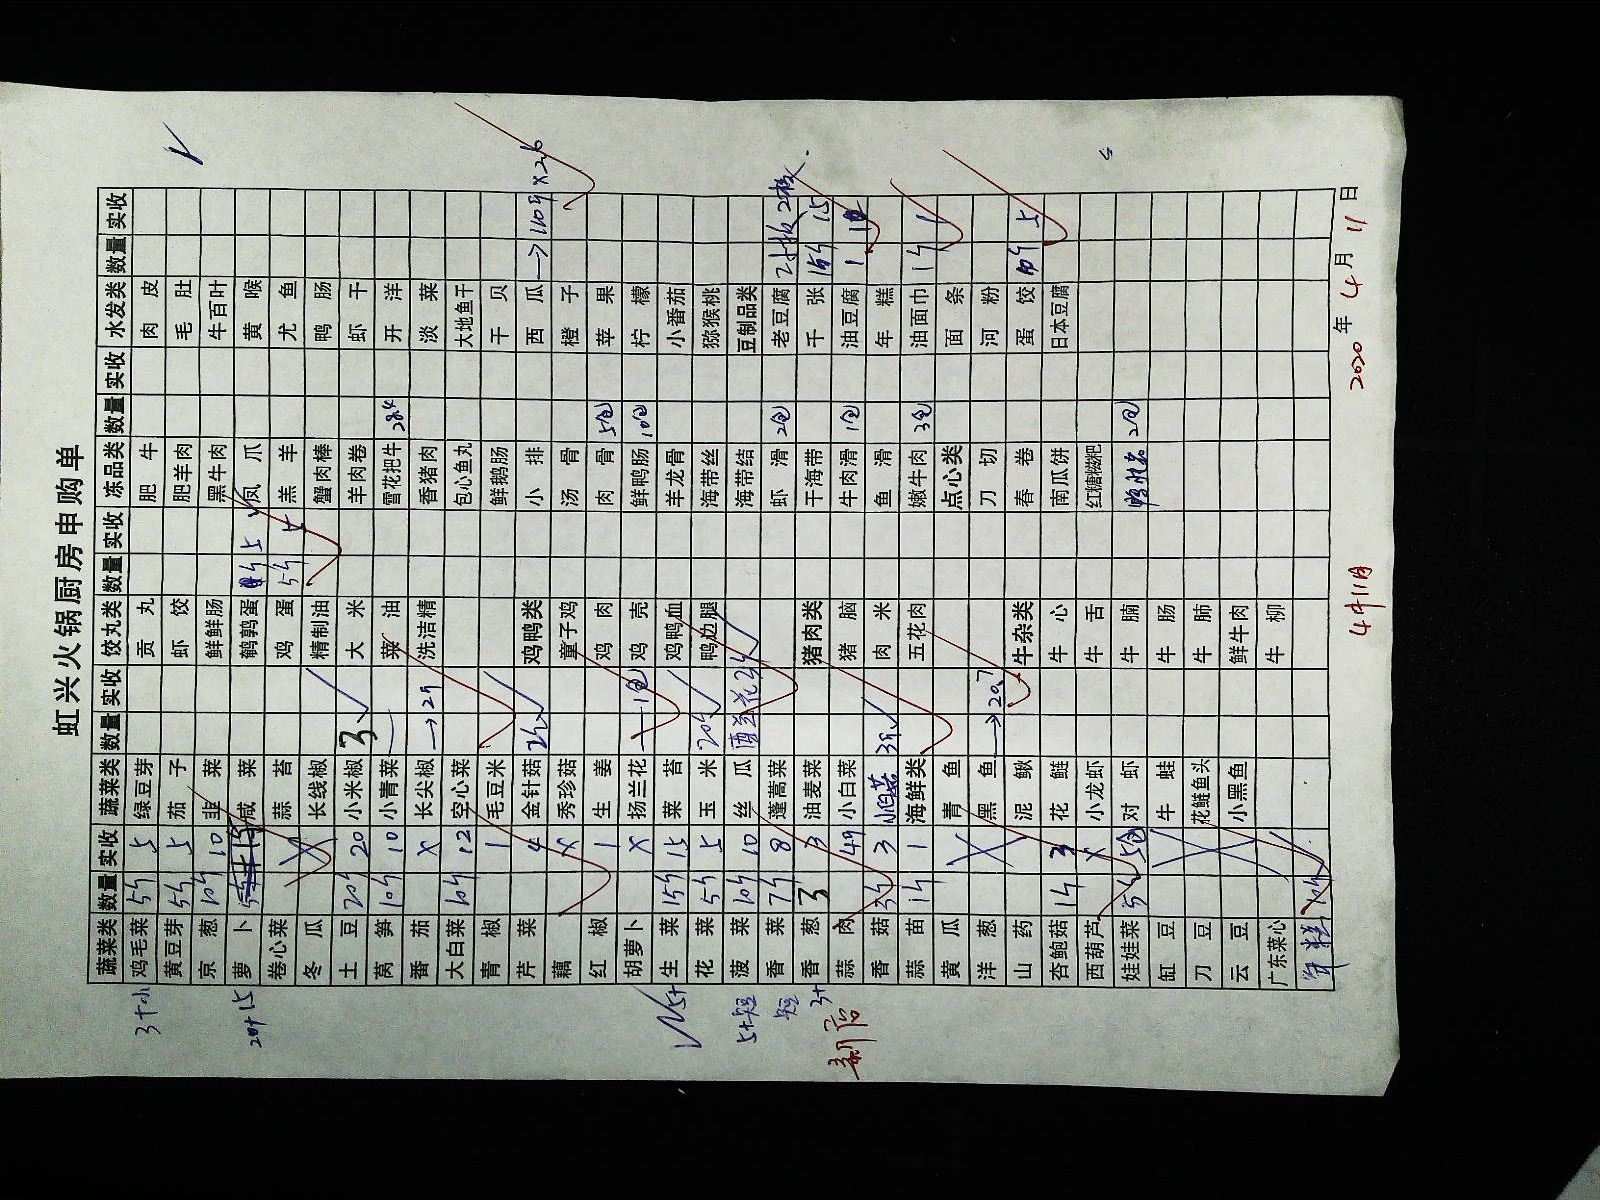 虹兴火锅厨房申购单
蔬菜类 数量 实收 蔬菜类 数量 实收 饺丸类 数量 实收 冻品类 数量 实收 水发类 数量 实收
鸡毛菜 5斤 5 绿豆芽 贡丸 肥牛 肉皮
黄豆芽 5斤 5 茄子 虾饺 肥羊肉 毛肚
京葱 10斤 10 韭菜 鲜鲜肠 黑牛肉 牛百叶
萝卜 15 咸菜 鹌鹑蛋 5 凤爪 黄喉
卷心菜 蒜苔 鸡蛋 5斤 5 羔羊 尤鱼
冬瓜 长线椒 精制油 蟹肉棒 鸭肠
土豆 20斤 20 小米椒 3 大米 羊肉卷 虾干
莴笋 10斤 10 小青菜 菜油 雪花把牛 开洋
番茄 x 长尖椒 →2斤 洗洁精 香猪肉 淡菜
大白菜 10斤 12 空心菜 包心鱼丸 大地鱼干
青椒 1 毛豆米 鲜鹅肠 干贝
芹菜 4 金针菇 鸡鸭类 小排 西瓜
藕 x 秀珍菇 童子鸡 汤骨 橙子
红椒 1 生姜 鸡肉 肉骨 5包 苹果
胡萝卜 x 扬兰花 1包 鸡壳 鲜鸭肠 10包 柠檬
生菜 15斤 15 菜苔 鸡鸭血 羊龙骨 小番茄
花菜 5斤 5 玉米 20斤 鸭边腿 海带丝 猕猴桃
菠菜 10斤 10 丝瓜 海带结 豆制品类
香菜 7斤 8 蓬蒿菜 虾滑 2包 老豆腐 2大板 2板
香葱 3 3 油麦菜 猪肉类 干海带 千张 15斤 15
蒜肉 49 小白菜 猪脑 牛肉滑 1包 油豆腐 1
香菇 3斤 3 肉米 鱼滑 年糕
蒜苗 1斤 1 海鲜类 五花肉 嫩牛肉 3包 油面巾 1斤 1
黄瓜 青鱼 点心类 面条
洋葱 黑鱼 →20.7 刀切 河粉
山药 泥鳅 牛杂类 春卷 蛋饺 5
杏鲍菇 1斤 3 花鲢 牛心 南瓜饼 日本豆腐
西胡芦 x 小龙虾 牛舌 红糖糍粑
娃娃菜 对虾 牛腩 2包
缸豆 牛蛙 牛肠
刀豆 花鲢鱼头 牛肺
云豆 小黑鱼 鲜牛肉
广东菜心 牛柳
年糕
新店
4月11日
2020年4月11日